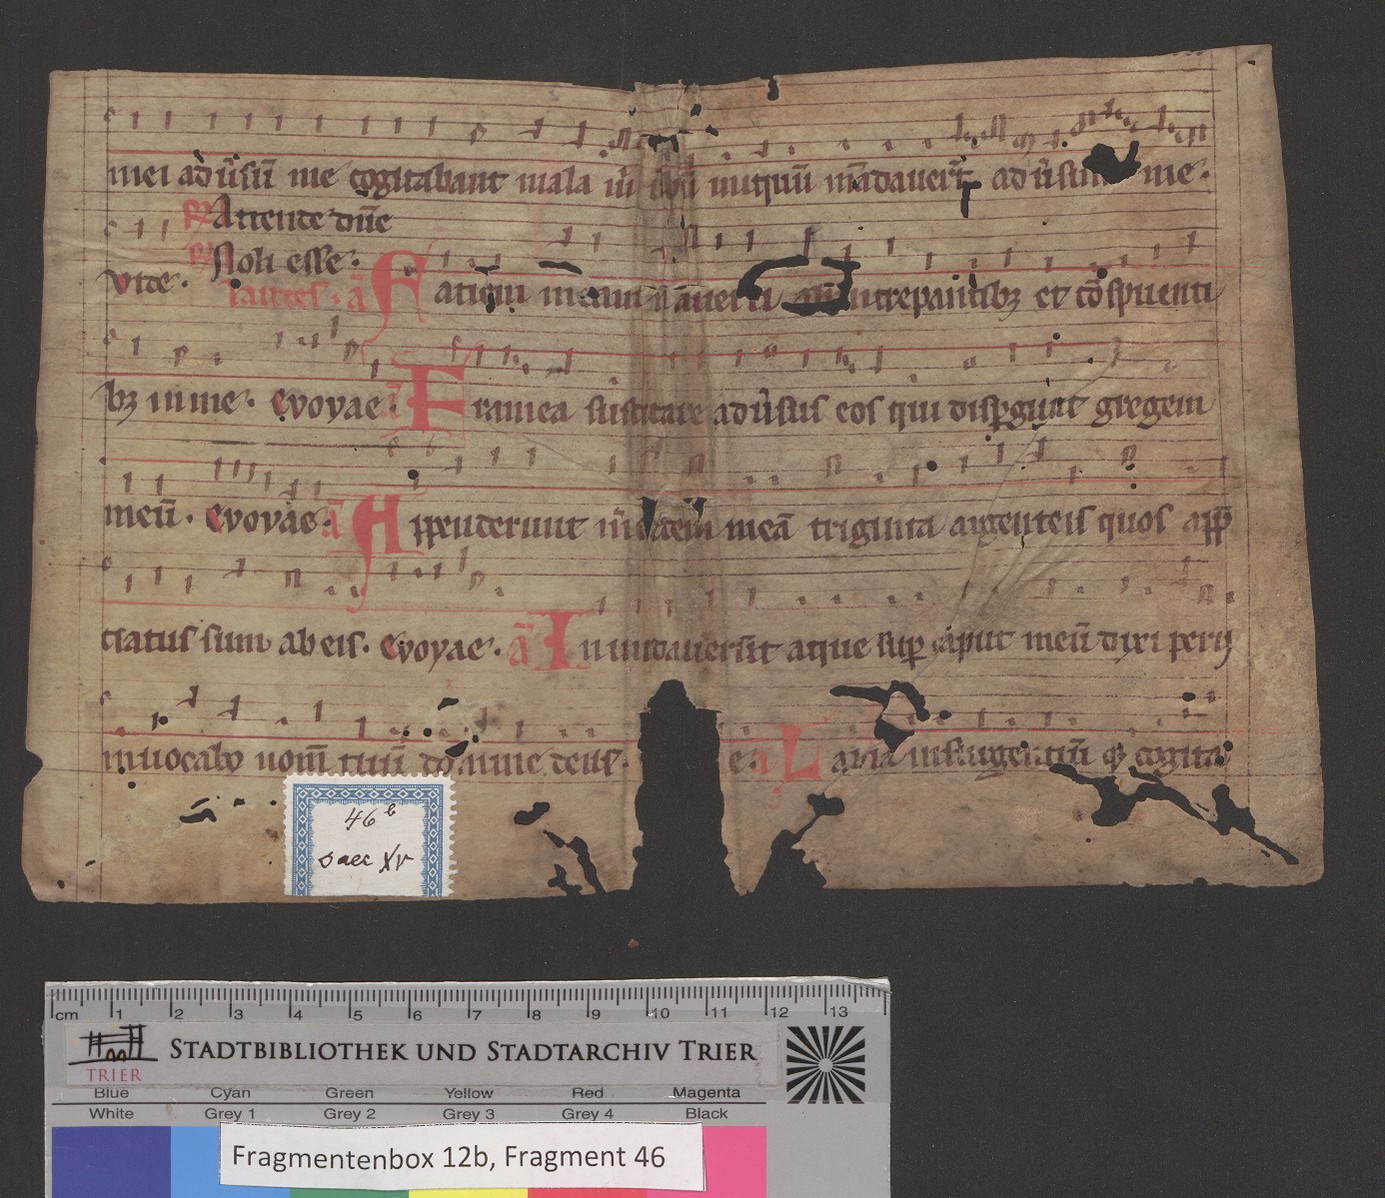 mei adūsū me cogitabant mala m̄ iniquū mādaverт̄ adūsum me.
R Attente dn̄e
R Noli esse.
vite. laudes. a Faciem meam n̄ averti ab increpantibꝫ et cōspuenti
bꝫ in me. evovae. a Framea suscitare adūsus eos qui dispgunt gregem
meū. evovae. a Appenderunt m̄cedem meā triginta argenteis quos app̄
ciatus sum ab eis. evovae. a Inundaverūt aque sup caput meū dixi perij
invocabo nom̄ tuū domine deus. e. a Labia insurgentiū cogita
46 b
saec XV
cm 1 2 3 4 5 6 7 8 9 10 11 12 13
TRIER
STADTBIBLIOTHEK UND STADTARCHIV TRIER
Blue Cyan Green Yellow Red Magenta
White Grey 1 Grey 2 Grey 3 Grey 4 Black
Fragmentenbox 12b, Fragment 46